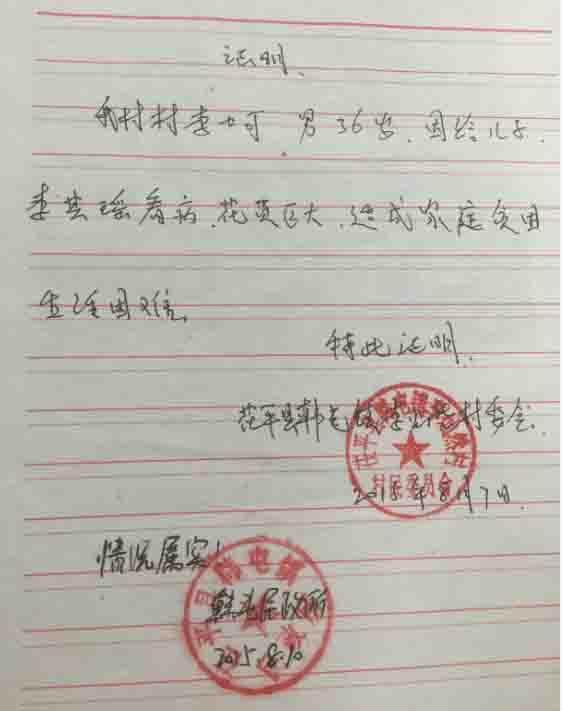 证明、
我村村李 可 男36岁、因给儿子、
李其瑶看病、花资巨大、造成家庭贫困
生活困难。
特此证明、
茌平县韩屯镇李 村委会、
村民委员会
2015年8月7日、
情况属实！
韩屯民政所
2015.8.10